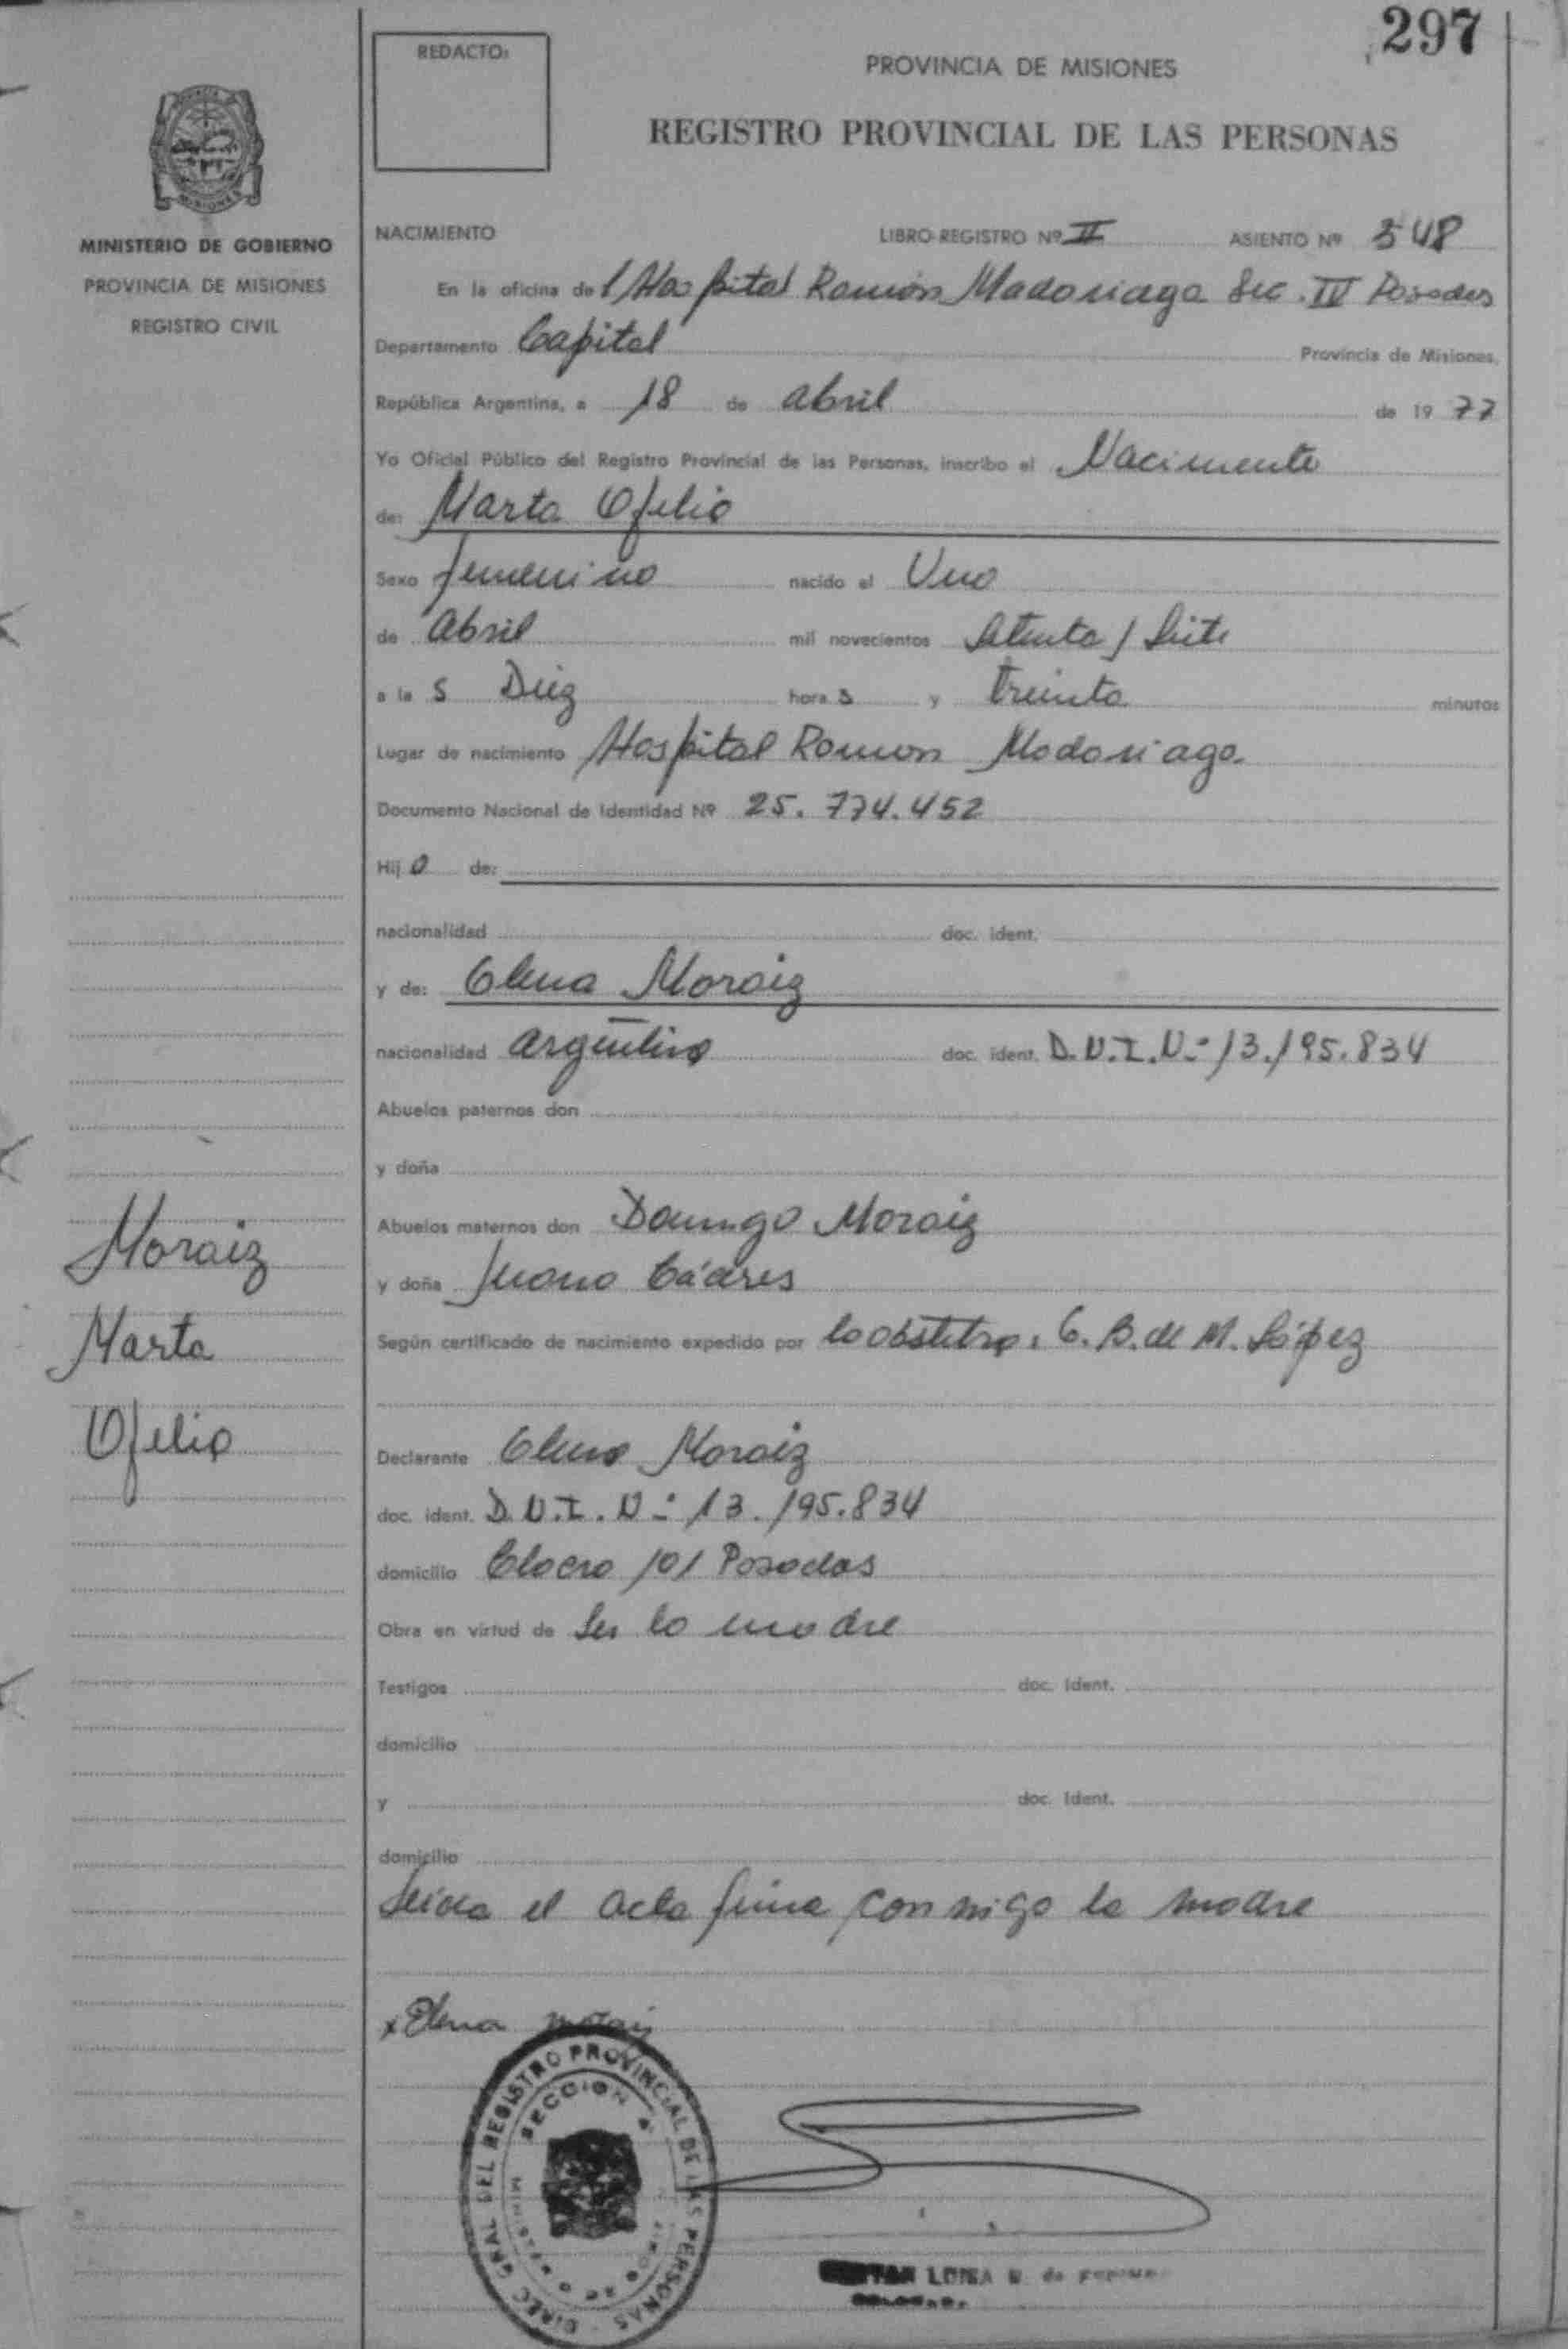 297
REDACTO:
PROVINCIA DE MISIONES
REGISTRO PROVINCIAL DE LAS PERSONAS
MISIONES
MINISTERIO DE GOBIERNO
PROVINCIA DE MISIONES
REGISTRO CIVIL
NACIMIENTO LIBRO-REGISTRO Nº II ASIENTO Nº 548
En la oficina del Hospital Ramón Madariaga Sec. IV Posadas
Departamento Capital Provincia de Misiones,
República Argentina, a 18 de abril de 1977
Yo Oficial Público del Registro Provincial de las Personas, inscribo el Nacimiento
de: Marta Ofelia
Sexo femenino nacido el Uno
de abril mil novecientos Setenta y Siete
a las Diez horas y treinta minutos
Lugar de nacimiento Hospital Ramon Madariaga
Documento Nacional de Identidad Nº 25.774.452
Hija de:
nacionalidad doc. ident.
y de: Elena Moraiz
nacionalidad argentina doc. ident. D.N.I.Nº 13.195.834
Abuelos paternos don
y doña
Abuelos maternos don Domingo Moraiz
y doña Juana Cáceres
Según certificado de nacimiento expedido por la obstetra: C.B. de M. López
Declarante Elena Moraiz
doc. ident. D.N.I. Nº 13.195.834
domicilio 101 Posadas
Obra en virtud de Ser la madre
Testigos doc. ident.
domicilio
y doc. ident.
domicilio
Leida el acta firma conmigo la madre
x Elena Moraiz
Moraiz
Marta
Ofelia
DIREC. GRAL. DEL REGISTRO PROVINCIAL DE LAS PERSONAS
SECCION 4
LUISA